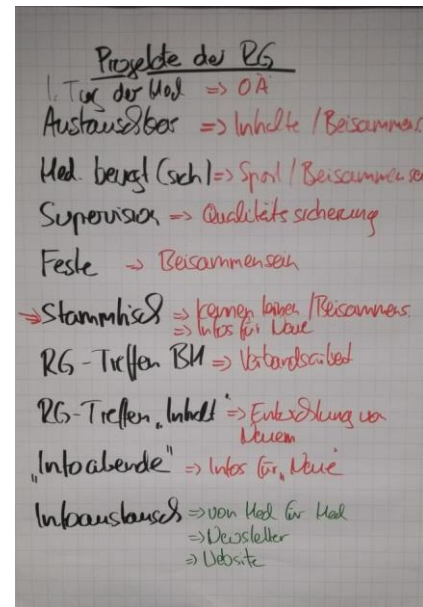 Projekte der RG
1. Tag der Med => ÖA
Austauschbar => Inhalte / Beisammens.
Med. bewegt (sich) => Sport / Beisammensein
Supervision => Qualitätssicherung
Feste => Beisammensein
=> Stammtisch => Kennen lernen / Beisammens.
=> Infos für Neue
RG-Treffen BM => Verbandsarbeit
RG-Treffen "Inhalt" => Entwicklung von
Neuem
"Infoabende" => Infos für "Neue
Infoaustausch => von Med für Med
=> Newsletter
=> Website